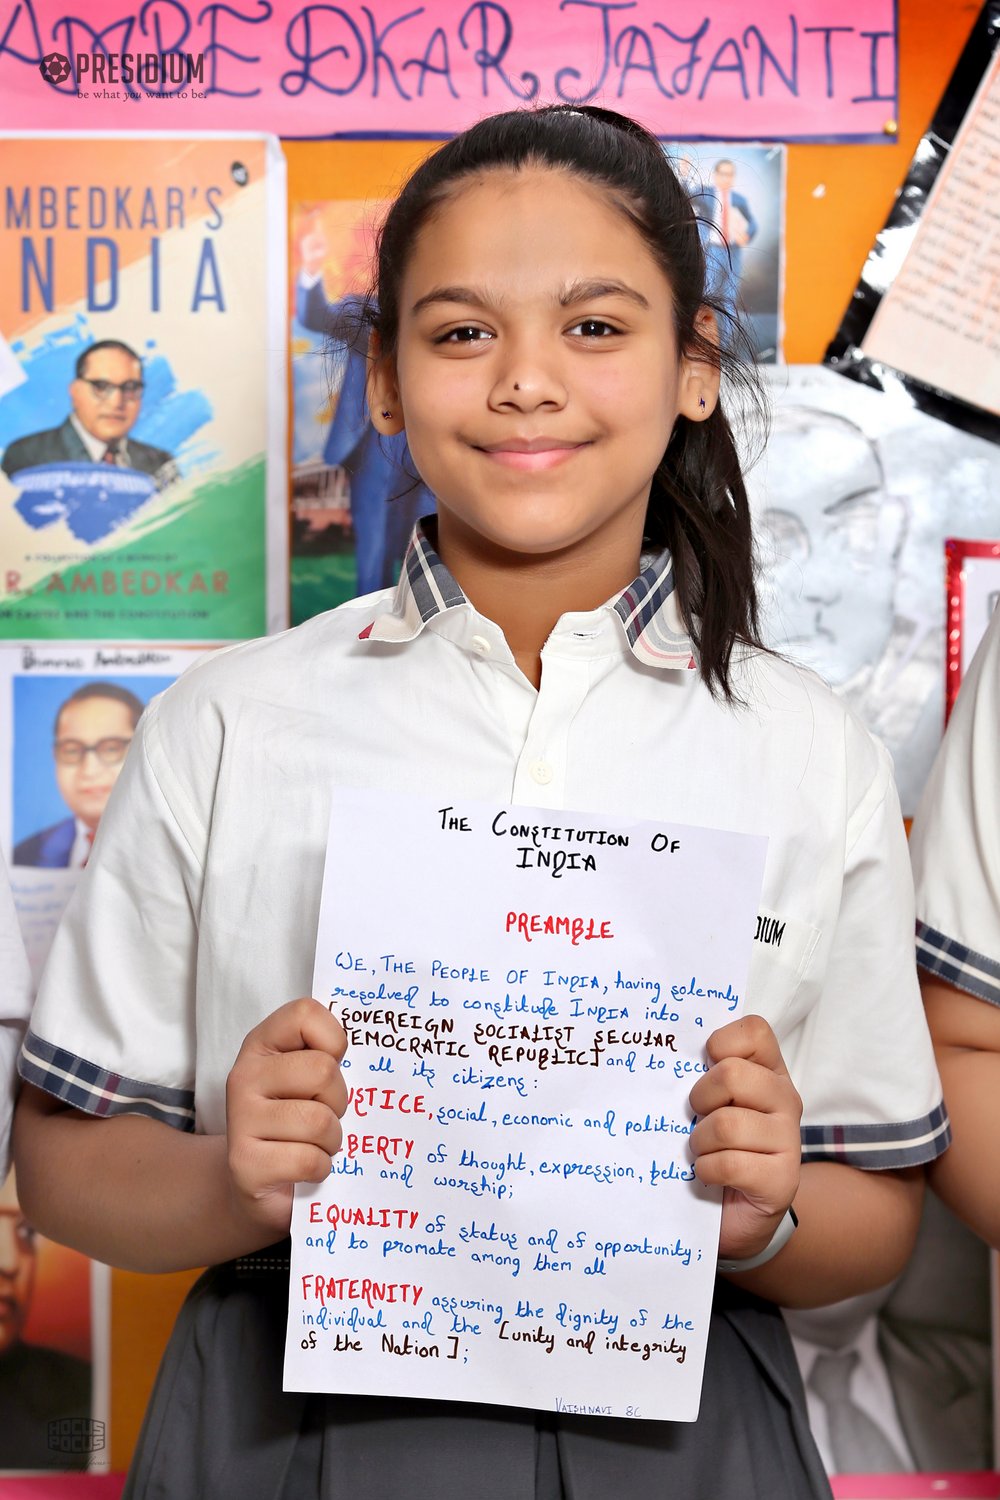 AMBEDKAR JAYANTI
PRESIDIUM
be what you want to be.
MBEDKAR'S
NDIA
R. AMBEDKAR
THE CONSTITUTION OF
INDIA
PREAMBLE
WE, THE PEOPLE OF INDIA, having solemnly
resolved to constitude INDIA into a
[SOVEREIGN SOCIALIST SECULAR
EMOCRATIC REPUBLIC] and to secu
o all its citizens:
USTICE, social, economic and political
BERTY of thought, expression, belief
aith and worship;
EQUALITY of status and of opportunity;
and to promate among them all
FRATERNITY assuring the dignity of the
individual and the [unity and integrity
of the Nation];
VAISHNAVI 8C
DIUM
HOCUS
POCUS